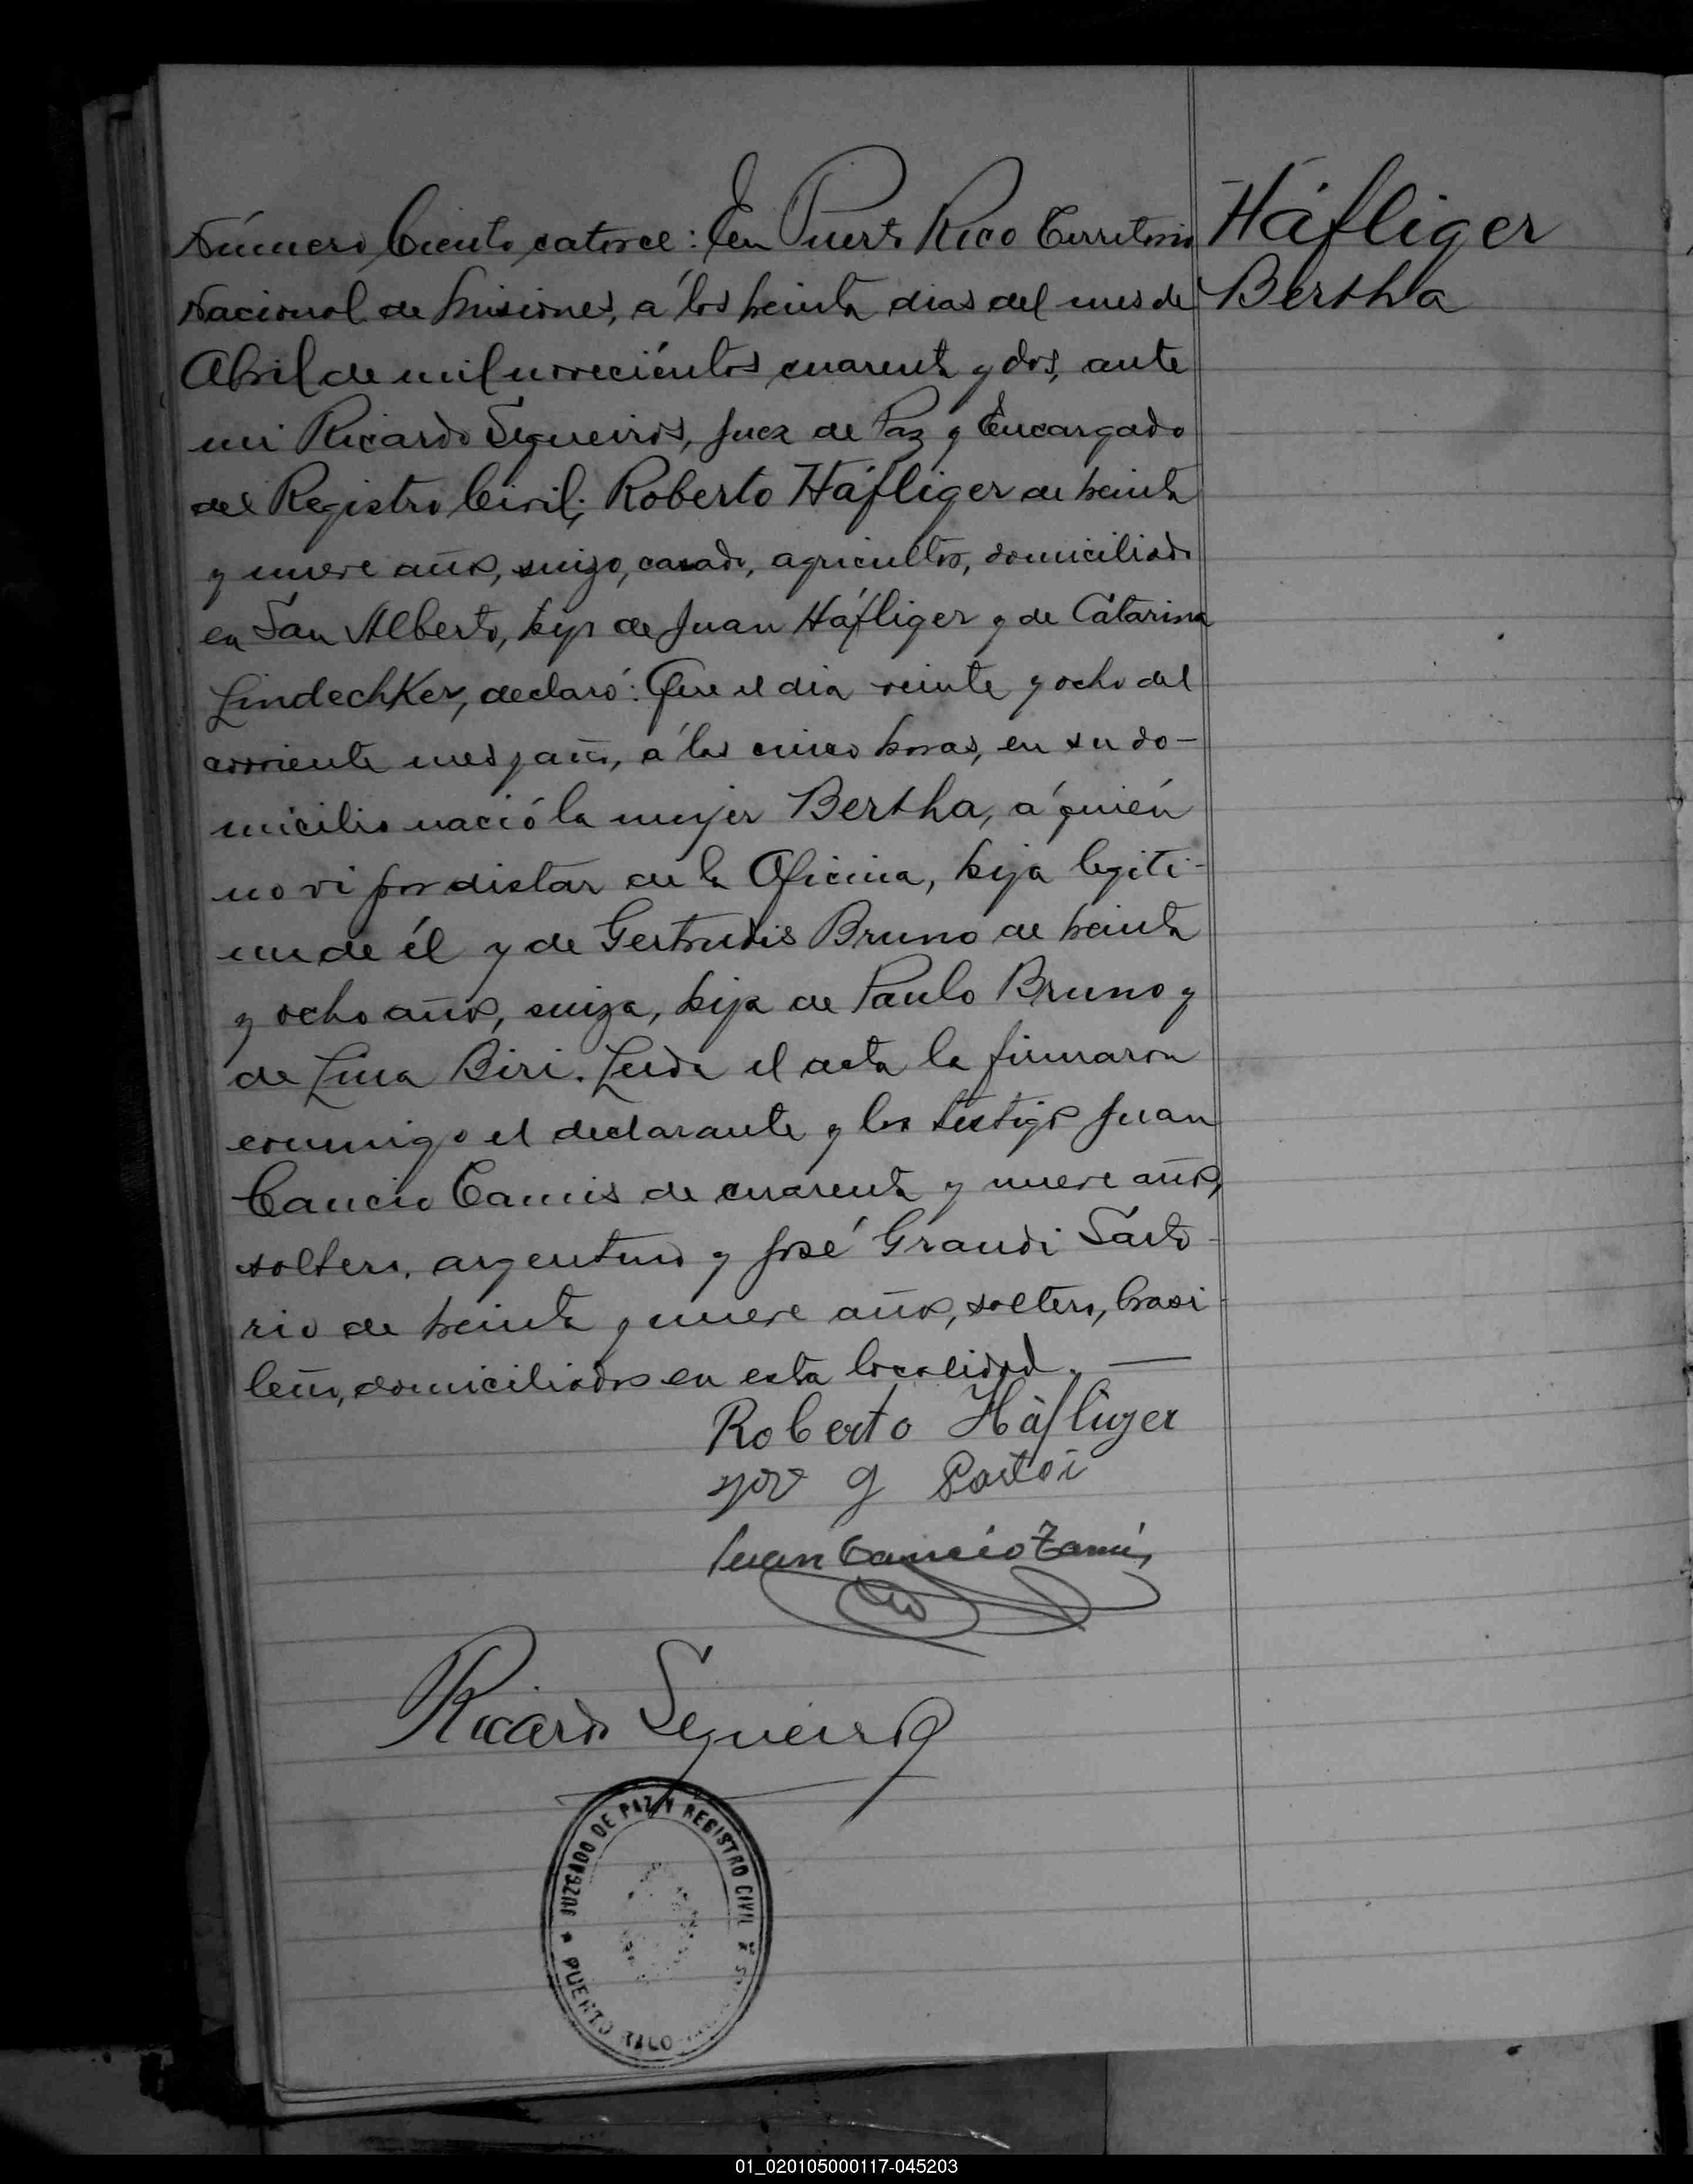 Número Ciento catorce: En Puerto Rico Territorio
Nacional de Misiones, a los treinta dias del mes de
Abril de mil novecientos cuarenta y dos, ante
mi Ricardo Sequeiros, Juez de Paz y Encargado
del Registro Civil; Roberto Háfliger de treinta
y nueve años, suizo, casado, agricultor, domiciliado
en San Alberto, hijo de Juan Háfliger y de Catarina
Lindechker, declaró: Que el dia veinte y ocho del
corriente mes y año, a las cinco horas, en su do-
micilio nació la mujer Bertha, a quién
no vi por distar de la Oficina, hija legiti-
ma de él y de Gertrudis Bruno de treinta
y ocho años, suiza, hija de Paulo Bruno y
de Lina Biri. Leida el acta la firmaron
conmigo el declarante y los testigos Juan
Cancio Camis de cuarenta y nueve años,
soltero, argentino y José Grandi Sarto-
rio de treinta y nueve años, soltero, brasi-
leño, domiciliados en esta localidad. —
Háfliger
Bertha
Roberto Häfliger
Juan Cancio
Ricardo Sequeiros
JUZGADO DE PAZ Y REGISTRO CIVIL
PUERTO RICO
01_020105000117-045203